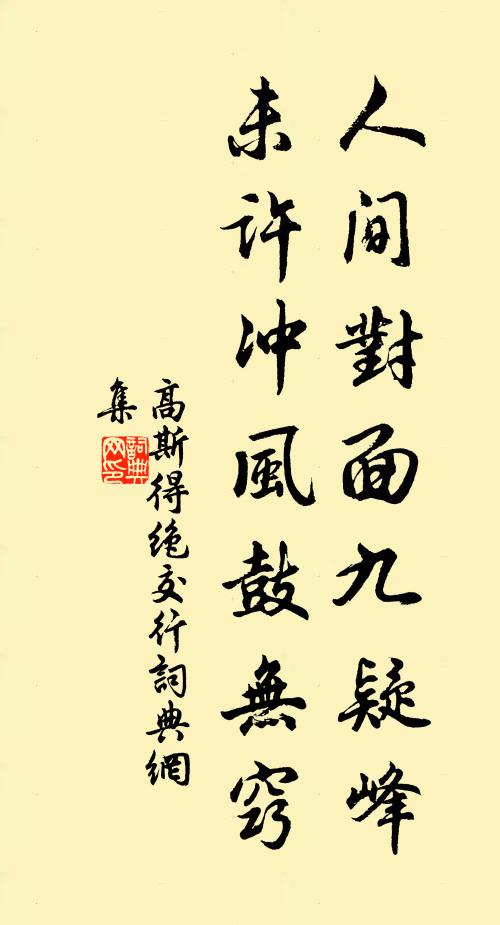 人间對面九疑峰
未许冲風鼓無窍
高斯得绝交行詞典網
集
詞典
网印